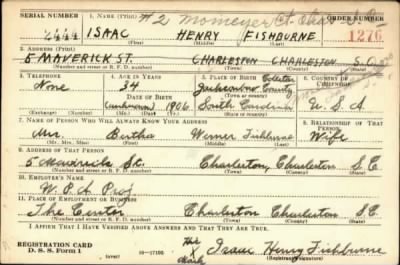 SERIAL NUMBER 1. NAME (Print) #2 Momeyer Ct. Chas S.C. ORDER NUMBER
2444 ISAAC HENRY FISHBURNE 1276
(First) (Middle) (Last)
2. ADDRESS (Print)
5 MAVERICK ST. CHARLESTON CHARLESTON S.C.
(Number and street or R. F. D. number) (Town) (County) (State)
3. TELEPHONE 4. AGE IN YEARS 5. PLACE OF BIRTH Colleton 6. COUNTRY OF CITIZENSHIP
None 34 County
DATE OF BIRTH (Town or county)
(unknown) 1906 South Carolina U. S. A.
(Exchange) (Number) (Mo.) (Day) (Yr.) (State or country)
7. NAME OF PERSON WHO WILL ALWAYS KNOW YOUR ADDRESS 8. RELATIONSHIP OF THAT PERSON
Mrs. Bertha Fishburne Wife
(Mr., Mrs., Miss) (First) (Middle) (Last)
9. ADDRESS OF THAT PERSON
5 Maverick St. Charleston, Charleston S C
(Number and street or R. F. D. number) (Town) (County) (State)
10. EMPLOYER'S NAME
W. P. A. Proj.
11. PLACE OF EMPLOYMENT OR BUSINESS
The Charleston Charleston S.C.
(Number and street or R. F. D. number) (Town) (County) (State)
I AFFIRM THAT I HAVE VERIFIED ABOVE ANSWERS AND THAT THEY ARE TRUE.
REGISTRATION CARD his
D. S. S. Form 1 16—17105 X Isaac Henry Fishburne
mark (Registrant's signature)